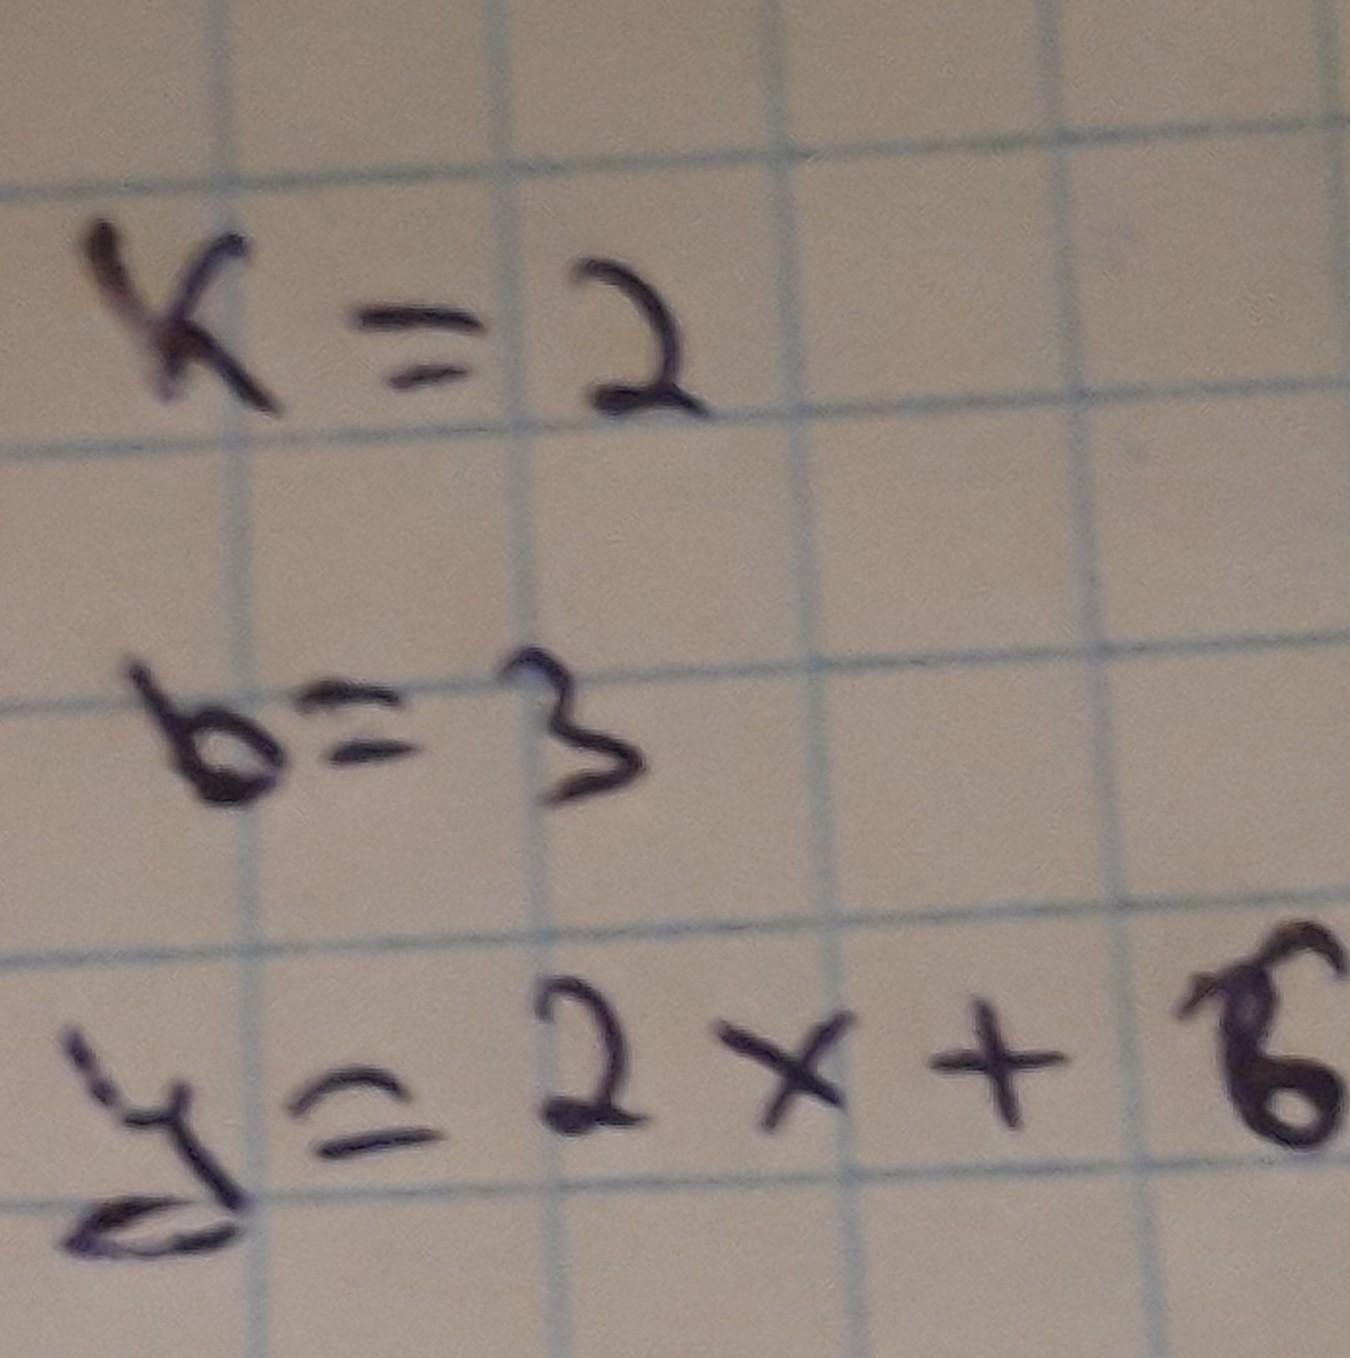 K = 2
b = 3
y = 2x +